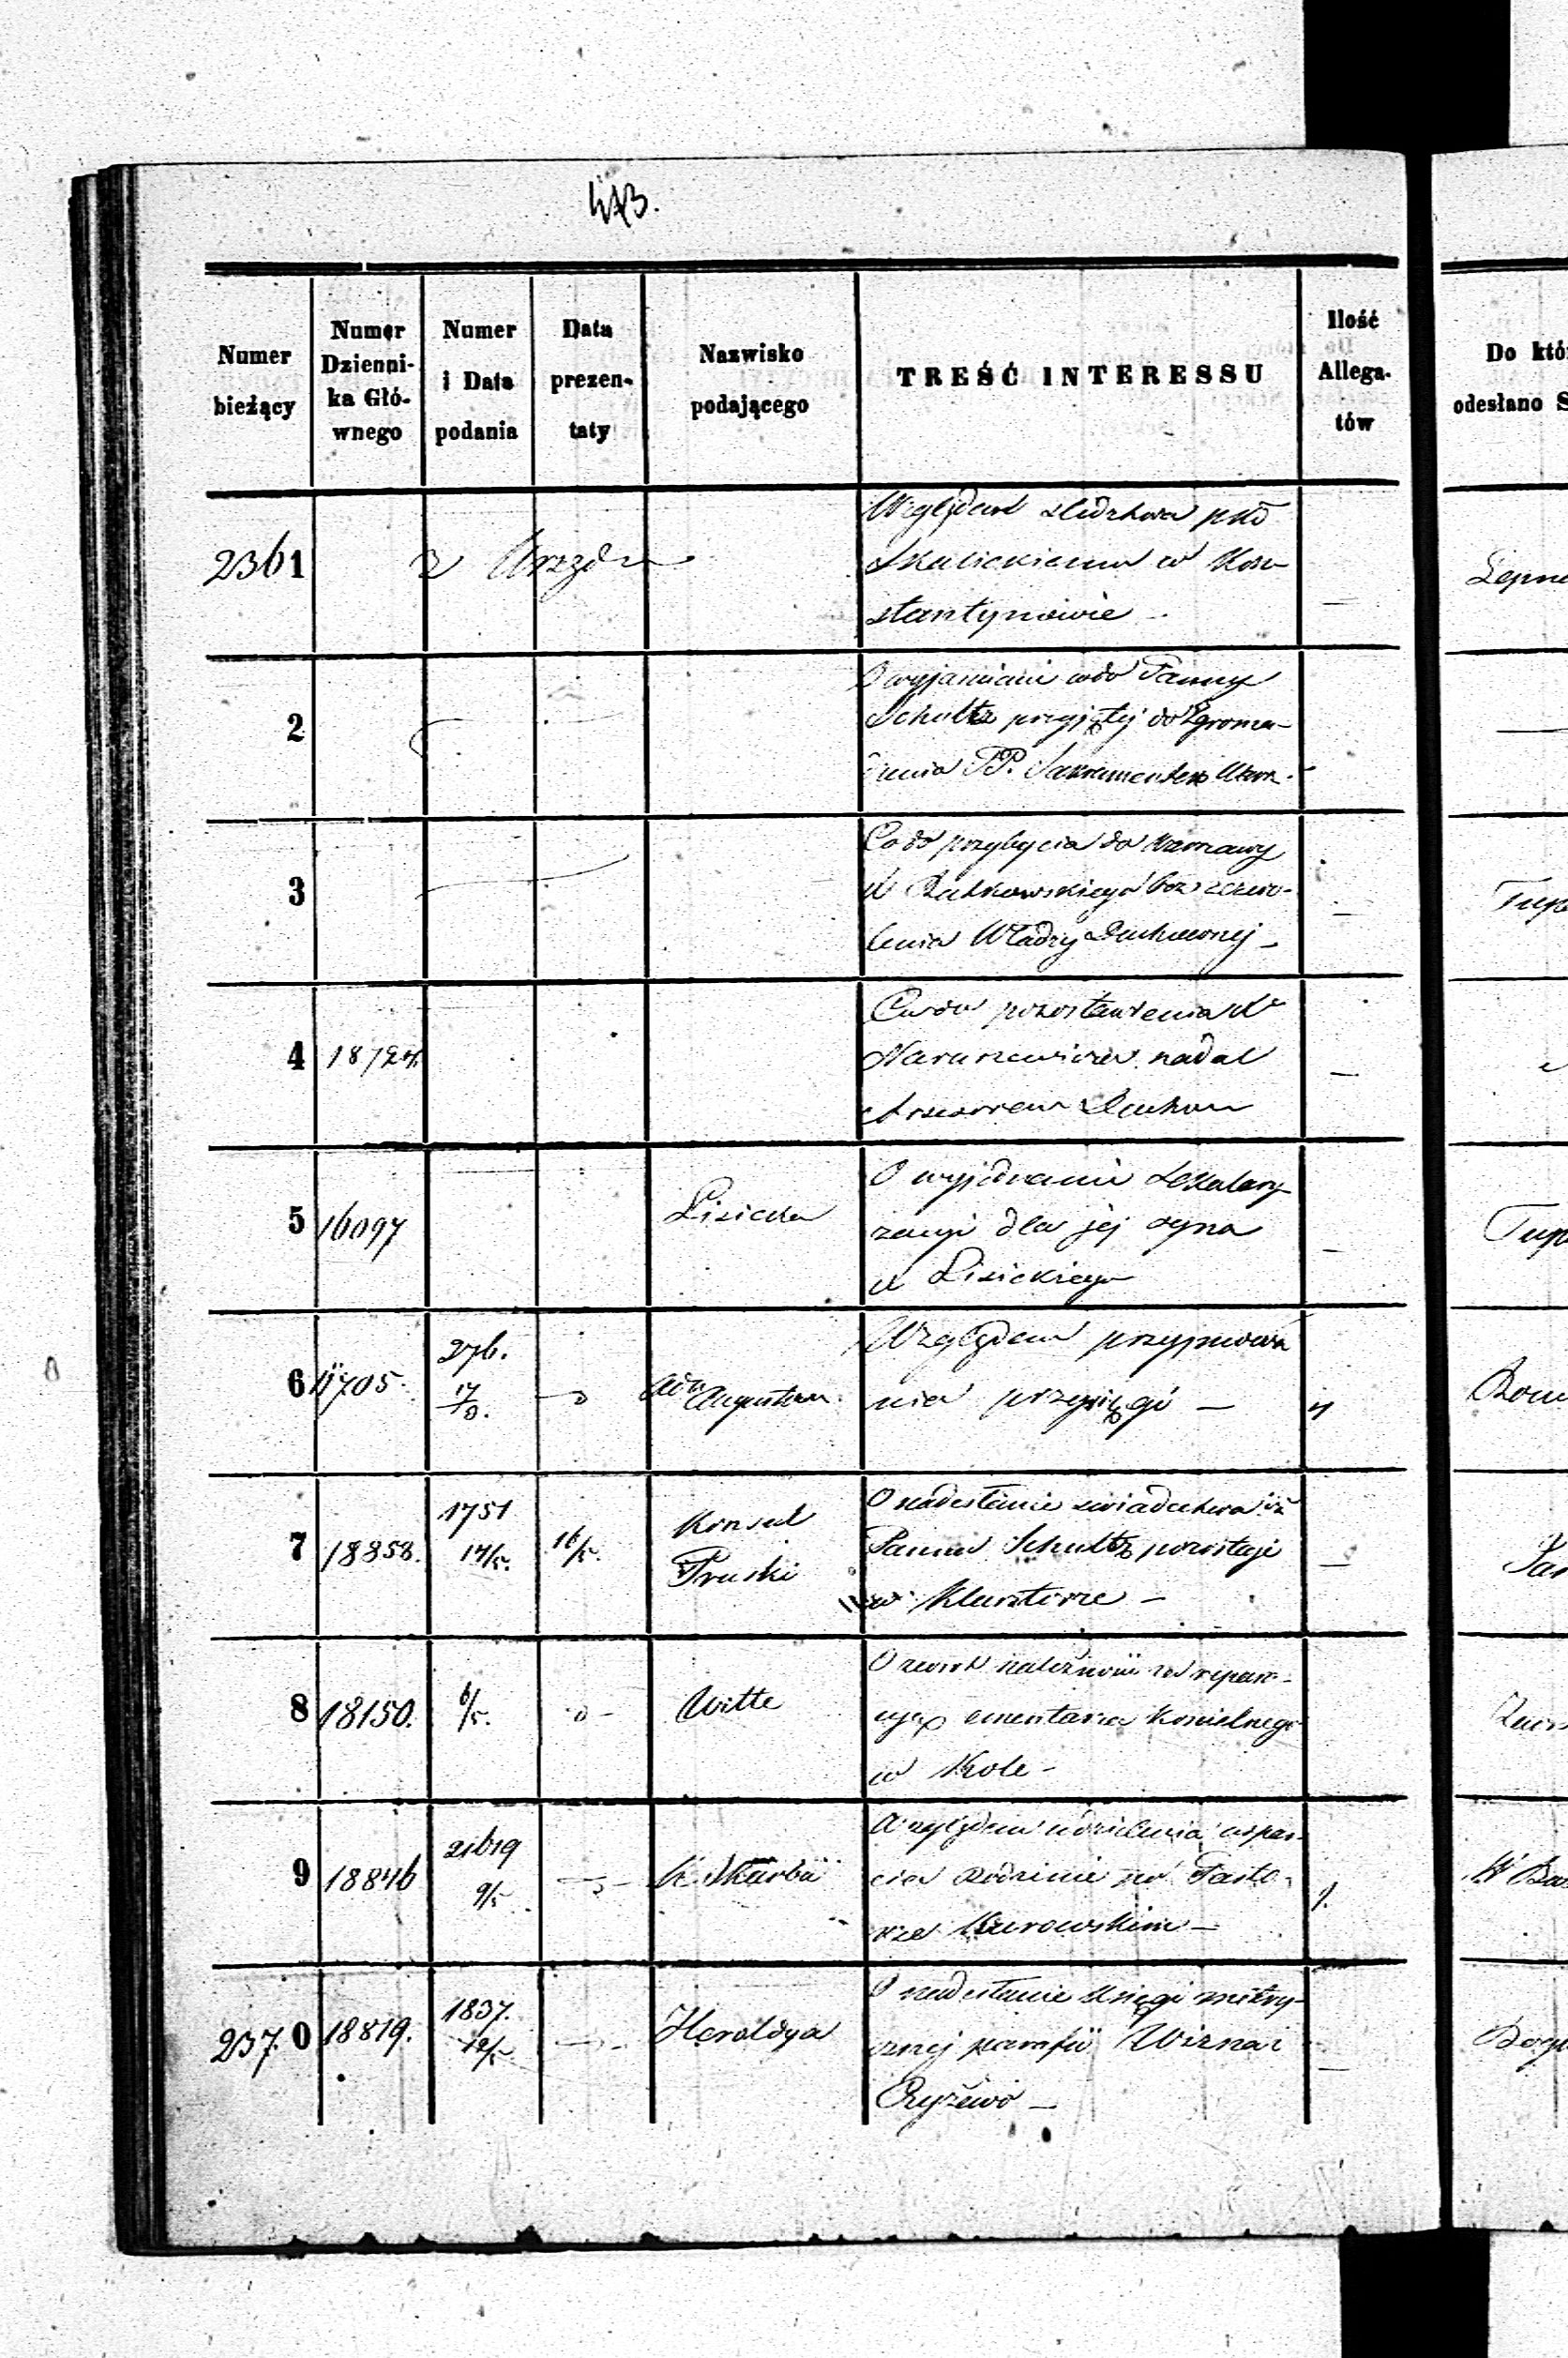 473.
Numer bieżący
Numer Dzienni-ka Głó-wnego
Numer i Data podania
Data prezen-taty
Nazwisko podającego
TREŚĆ INTERESSU
Ilość Allega-tów
Do któ
odesłano S
2361
z Urzędu
Względem śledztwa
Skalickiemu w Kon
stantynowie -
2
O wyjaśnienie codo Panny
Schultz przyjętej do Zgroma-
dzenia PP. Sakramentek
3
Co do przybycia do Warszawy
X Rutkowskiego bez zezwo-
lenia Władzy Duchownej -
Tup
4
Co do pozostawienia X
Naruszewicza nadal
Assessorem Duchow
5
16097
Lisicka
O wyjednanie Sekulary
zacyi dla jej syna
X Lisickiego
Tup
6
11705
276.
17/
Adm Augustow
Względem przyjmowa
nia przysięgi -
7
18858.
1751
14/5.
16/5.
Konsul
Pruski
O nadesłanie świadectwa iż
Panna Schultz pozostaje
w Klasztorze -
8
18150.
6/5.
Witte
O zwrot należności za repara-
cyę cmentarza Kościelnego
w Kole -
9
18846
21619
9/5
K. Skarbu
Względem udzielenia wspar-
cia Rodzinie po Pasto-
rze Kurowskim -
1.
2370
18819.
1837.
12/5
Heroldya
O nadesłanie Księgi metry-
cznej parafii Wizna i
Ryżewo -